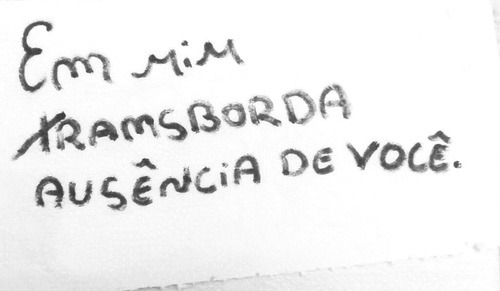 Em mim
TRAMSBORDA
AUSÊNCIA DE VOCÊ.